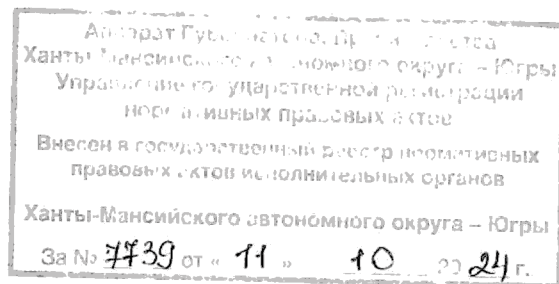 Аппарат Губернатора, Правительства
Ханты-Мансийского автономного округа – Югры
Управление государственной регистрации
нормативных правовых актов
Внесен в государственный реестр нормативных
правовых актов исполнительных органов
Ханты-Мансийского автономного округа – Югры
За № 7739 от « 11 » 10 2024 г.